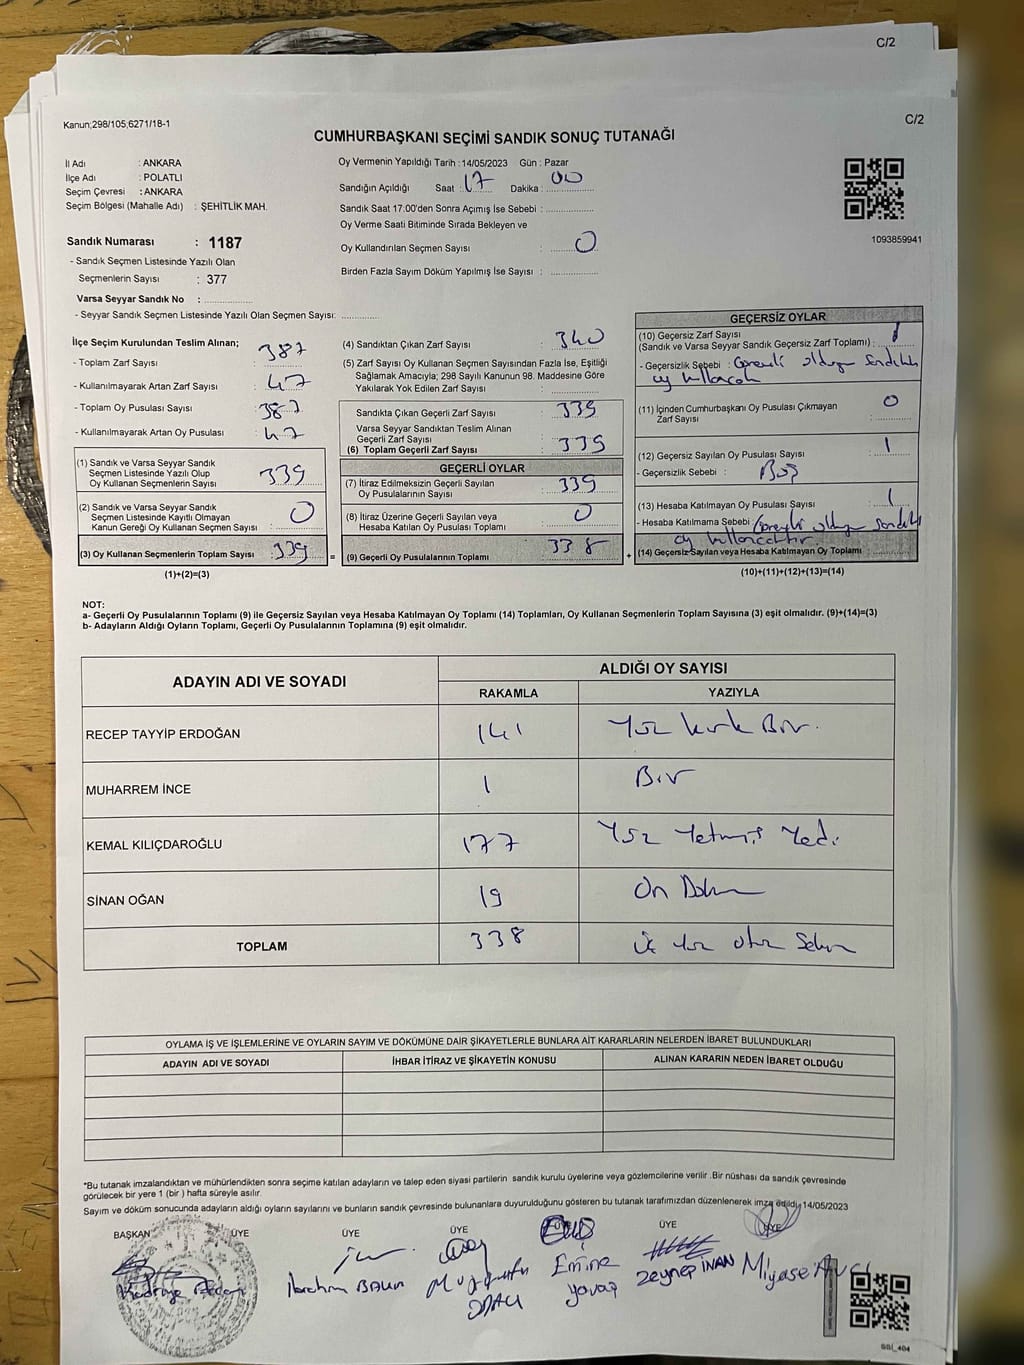 C/2
C/2
Kanun;298/105;6271/18-1
CUMHURBAŞKANI SEÇİMİ SANDIK SONUÇ TUTANAĞI
İl Adı : ANKARA
İlçe Adı : POLATLI
Seçim Çevresi : ANKARA
Seçim Bölgesi (Mahalle Adı) : ŞEHİTLİK MAH.
Oy Vermenin Yapıldığı Tarih : 14/05/2023 Gün : Pazar
Sandığın Açıldığı Saat : 17 Dakika : 00
Sandık Saat 17:00'den Sonra Açımış İse Sebebi :
Oy Verme Saati Bitiminde Sırada Bekleyen ve
Oy Kullandırılan Seçmen Sayısı : 0
Birden Fazla Sayım Döküm Yapılmış İse Sayısı :
1093859941
Sandık Numarası : 1187
- Sandık Seçmen Listesinde Yazılı Olan
Seçmenlerin Sayısı : 377
Varsa Seyyar Sandık No :
- Seyyar Sandık Seçmen Listesinde Yazılı Olan Seçmen Sayısı:
İlçe Seçim Kurulundan Teslim Alınan;
- Toplam Zarf Sayısı : 387
- Kullanılmayarak Artan Zarf Sayısı : 47
- Toplam Oy Pusulası Sayısı : 387
- Kullanılmayarak Artan Oy Pusulası : 47
(1) Sandık ve Varsa Seyyar Sandık
Seçmen Listesinde Yazılı Olup
Oy Kullanan Seçmenlerin Sayısı : 339
(2) Sandık ve Varsa Seyyar Sandık
Seçmen Listesinde Kayıtlı Olmayan
Kanun Gereği Oy Kullanan Seçmen Sayısı : 0
(3) Oy Kullanan Seçmenlerin Toplam Sayısı : 339 =
(1)+(2)=(3)
(4) Sandıktan Çıkan Zarf Sayısı : 340
(5) Zarf Sayısı Oy Kullanan Seçmen Sayısından Fazla İse, Eşitliği
Sağlamak Amacıyla; 298 Sayılı Kanunun 98. Maddesine Göre
Yakılarak Yok Edilen Zarf Sayısı :
Sandıkta Çıkan Geçerli Zarf Sayısı : 339
Varsa Seyyar Sandıktan Teslim Alınan
Geçerli Zarf Sayısı :
(6) Toplam Geçerli Zarf Sayısı : 339
GEÇERLİ OYLAR
(7) İtiraz Edilmeksizin Geçerli Sayılan
Oy Pusulalarının Sayısı : 339
(8) İtiraz Üzerine Geçerli Sayılan veya
Hesaba Katılan Oy Pusulası Toplamı : 0
(9) Geçerli Oy Pusulalarının Toplamı : 338 +
GEÇERSİZ OYLAR
(10) Geçersiz Zarf Sayısı
(Sandık ve Varsa Seyyar Sandık Geçersiz Zarf Toplamı) : 1
- Geçersizlik Sebebi : Görevli olduğu Sandıkta
oy kullanacak
(11) İçinden Cumhurbaşkanı Oy Pusulası Çıkmayan
Zarf Sayısı : 0
(12) Geçersiz Sayılan Oy Pusulası Sayısı : 1
- Geçersizlik Sebebi : Boş
(13) Hesaba Katılmayan Oy Pusulası Sayısı : 1
- Hesaba Katılmama Sebebi : Görevli olduğu Sandıkta
oy kullanacaktır.
(14) Geçersiz Sayılan veya Hesaba Katılmayan Oy Toplamı
(10)+(11)+(12)+(13)=(14)
NOT:
a- Geçerli Oy Pusulalarının Toplamı (9) ile Geçersiz Sayılan veya Hesaba Katılmayan Oy Toplamı (14) Toplamları, Oy Kullanan Seçmenlerin Toplam Sayısına (3) eşit olmalıdır. (9)+(14)=(3)
b- Adayların Aldığı Oyların Toplamı, Geçerli Oy Pusulalarının Toplamına (9) eşit olmalıdır.
ADAYIN ADI VE SOYADI ALDIĞI OY SAYISI
RAKAMLA YAZIYLA
RECEP TAYYİP ERDOĞAN 141 Yüz kırk Bir.
MUHARREM İNCE 1 Bir
KEMAL KILIÇDAROĞLU 177 Yüz Yetmiş Yedi
SİNAN OĞAN 19 On Dokuz
TOPLAM 338 Üç Yüz otuz Sekiz
OYLAMA İŞ VE İŞLEMLERİNE VE OYLARIN SAYIM VE DÖKÜMÜNE DAİR ŞİKAYETLERLE BUNLARA AİT KARARLARIN NELERDEN İBARET BULUNDUKLARI
ADAYIN ADI VE SOYADI İHBAR İTİRAZ VE ŞİKAYETİN KONUSU ALINAN KARARIN NEDEN İBARET OLDUĞU
*Bu tutanak imzalandıktan ve mühürlendikten sonra seçime katılan adayların ve talep eden siyasi partilerin sandık kurulu üyelerine veya gözlemcilerine verilir .Bir nüshası da sandık çevresinde
görülecek bir yere 1 (bir ) hafta süreyle asılır.
Sayım ve döküm sonucunda adayların aldığı oyların sayılarını ve bunların sandık çevresinde bulunanlara duyurulduğunu gösteren bu tutanak tarafımızdan düzenlenerek imza edildi. 14/05/2023
BAŞKAN ÜYE ÜYE ÜYE ÜYE ÜYE
İbrahim Emine Yavaş Zeynep İNAN Miyase AVCI